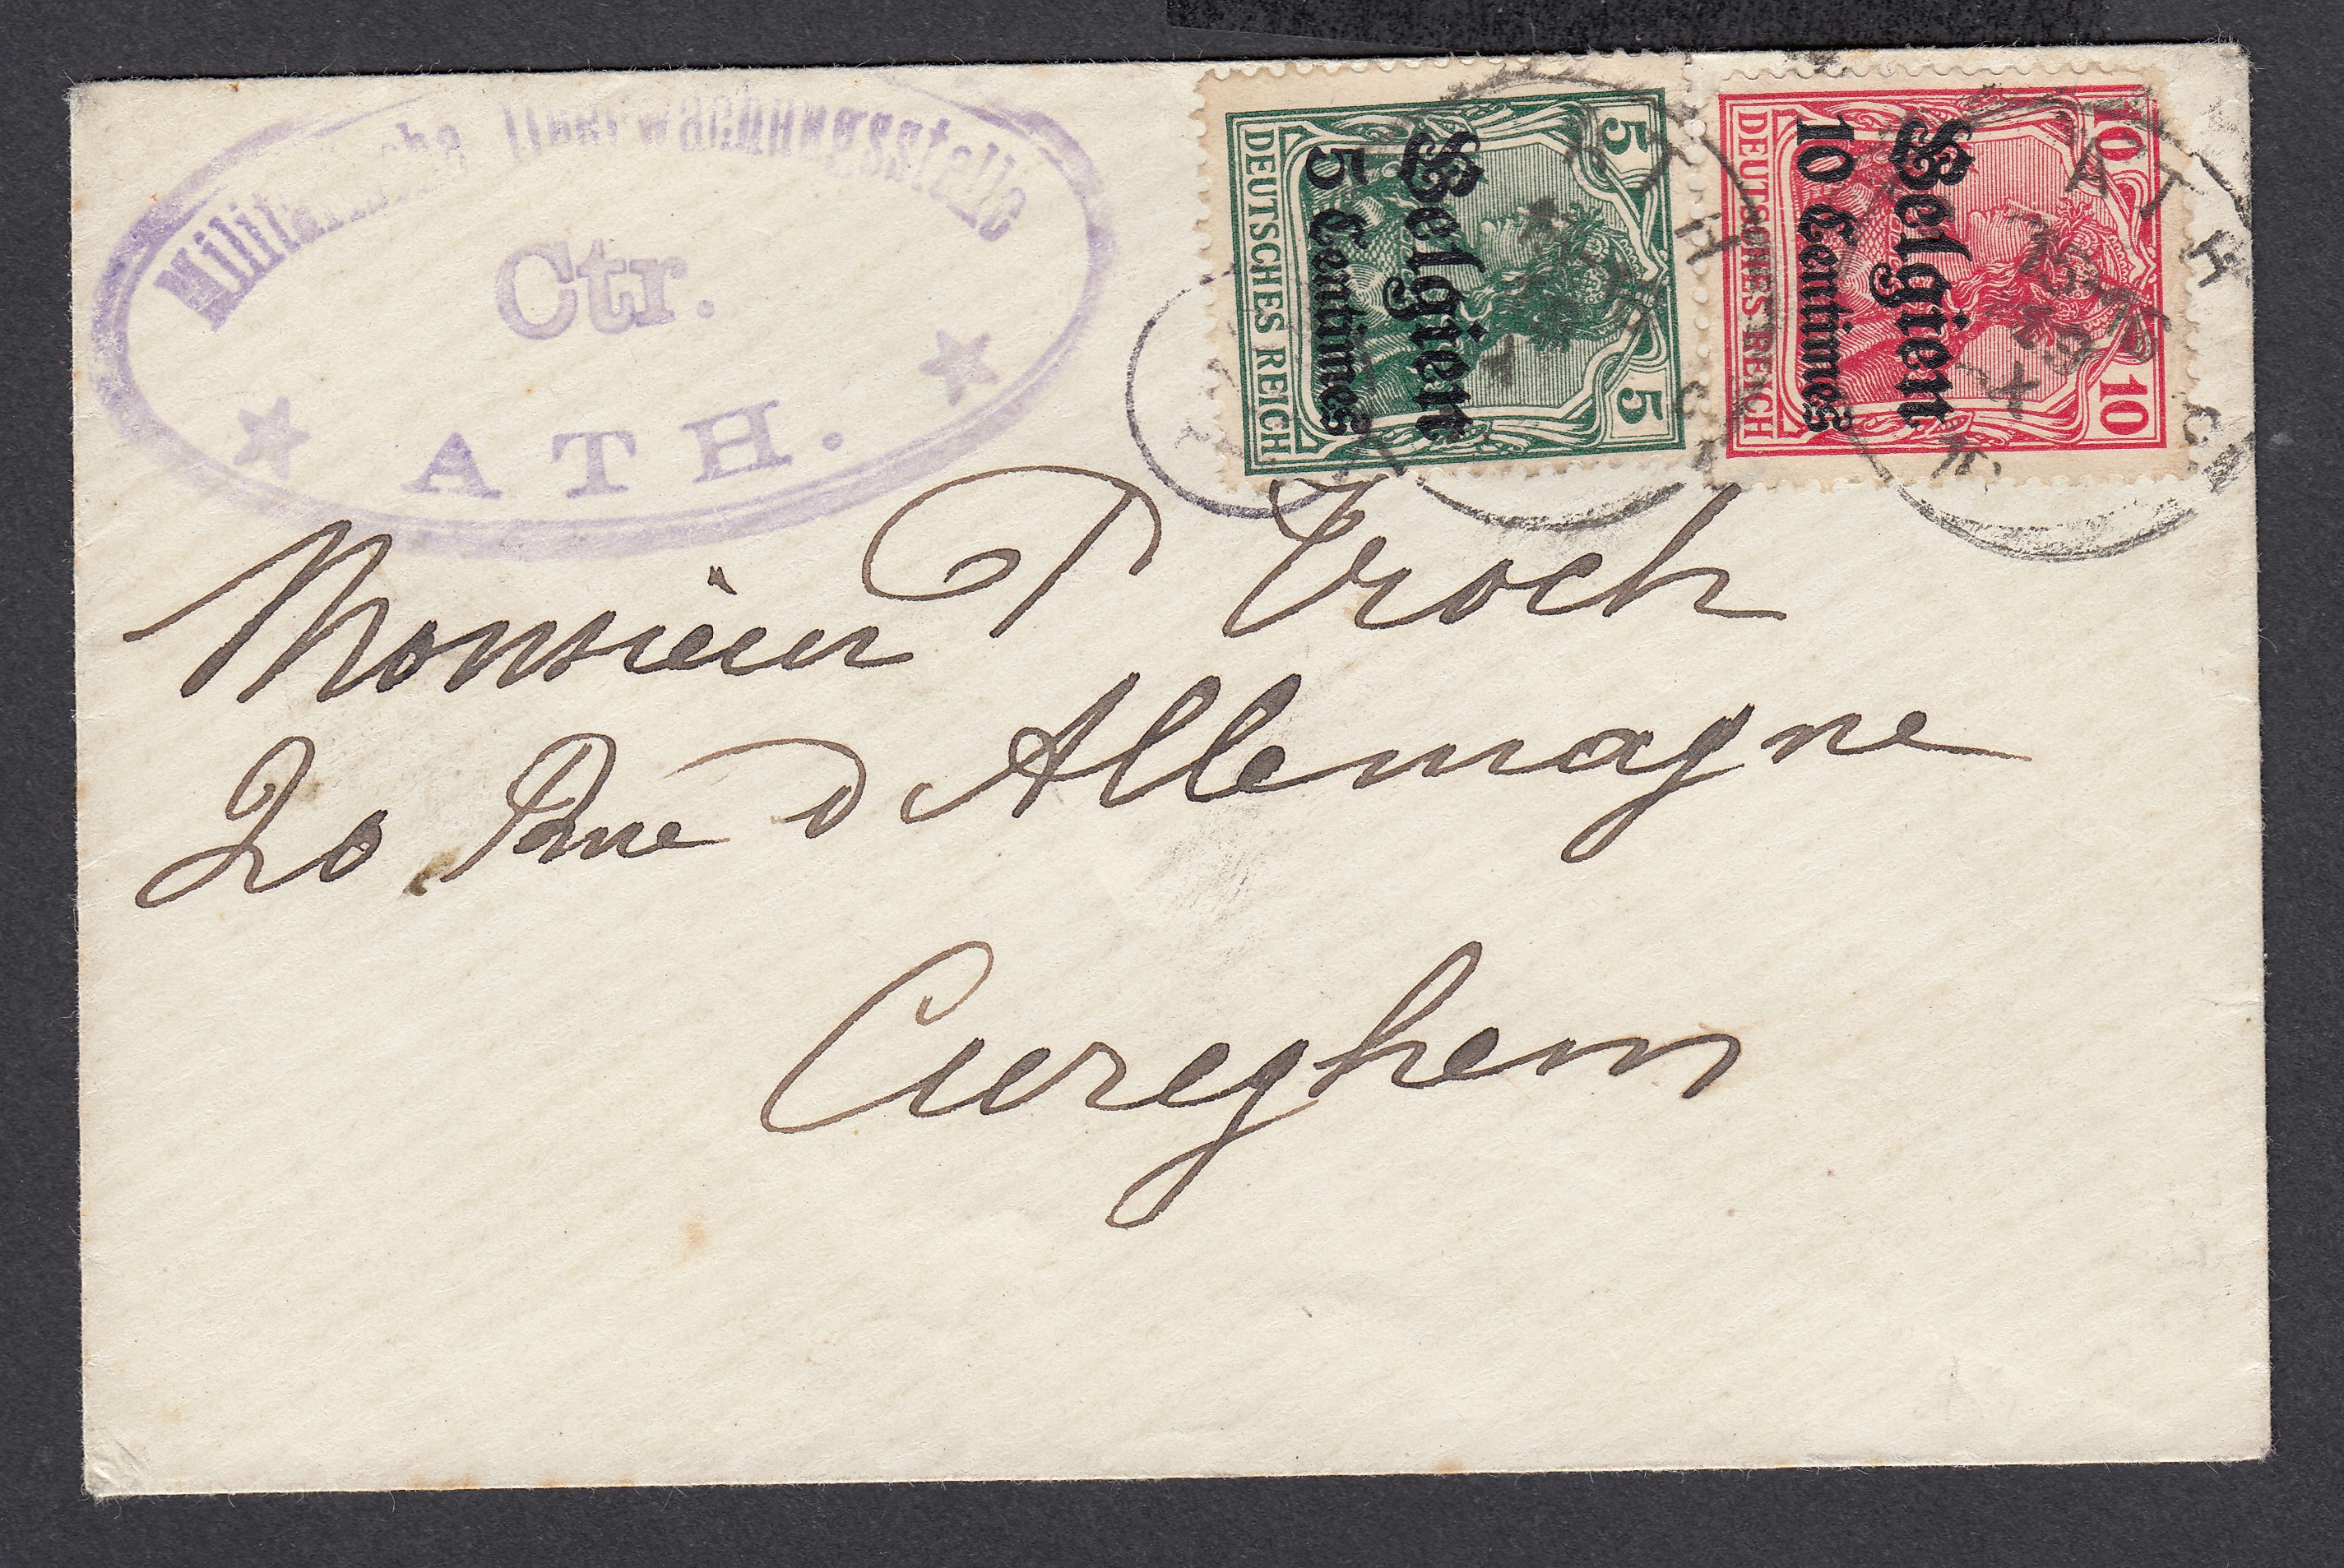 Militärische Überwachungsstelle
Ctr.
ATH.
5 5
Belgien
5 Centimes
DEUTSCHES REICH
10 10
Belgien
10 Centimes
DEUTSCHES REICH
ATH
ATH
Monsieur P Troch
20 Rue d Allemagne
Cureghem